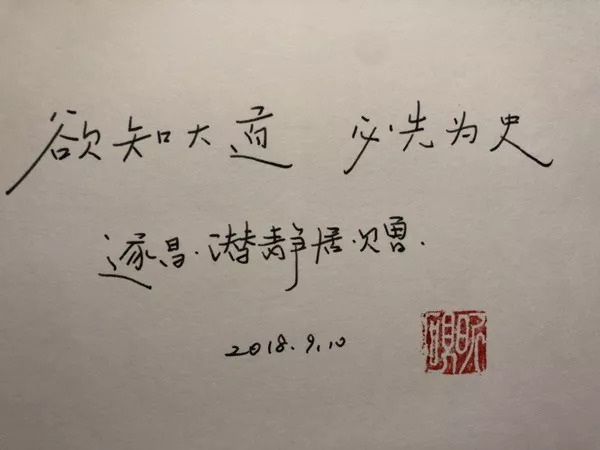 欲知大道 必先为史
遂昌.潜静居.赠.
2018.9.10